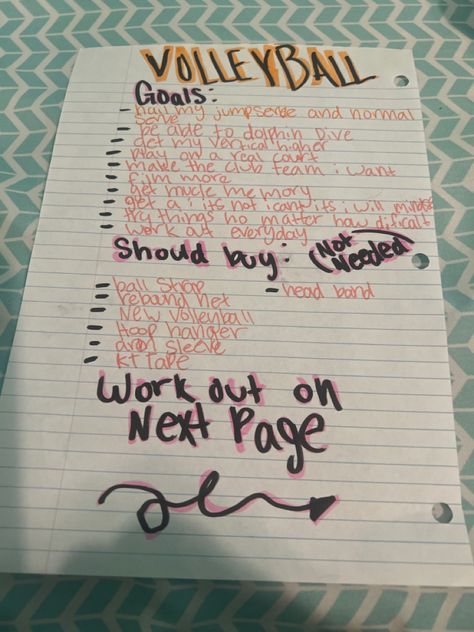 VOLLEYBALL
Goals:
- nail my jumpserve and normal
serve
- be able to dolphin Dive
- get my vertical higher
- play on a real court
- make the club team i want
- film more
- get mucle memory
- get a i its not i cant its i will mindset
- try things no matter how dificalt
- work out everyday
Should buy: (Not Needed)
- ball strap - head band
- rebound net
- New volleyball
- Hoop hanger
- arm sleeve
- KT Tape
Work out on
Next Page